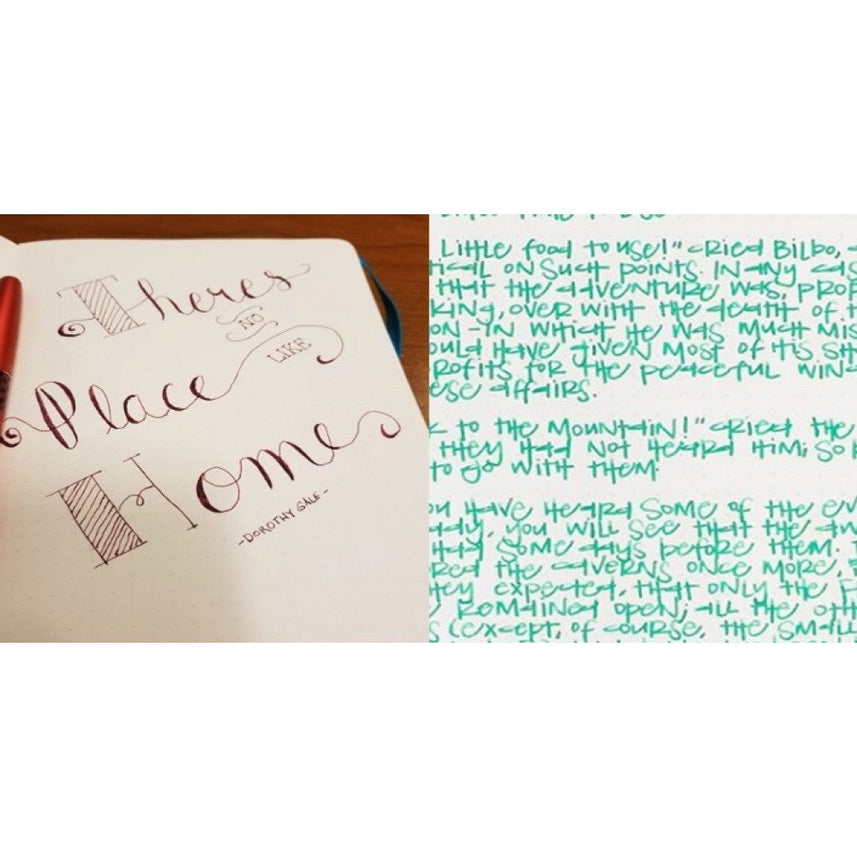 Theres
NO
LIKE
Place
Home
-DOROTHY GALE-
Little food to use!" cried Bilbo,
tical on such points. In any cas
that the adventure was, prop
king, over with the death of
on-in which he was much mis
ould have given most of his sh
rofits for the peaceful win
ese affairs.
k to the Mountain!" cried the
they had not heard him; so
to go with them
ou have heard some of the ev
ady, you will see that the
had some days before them.
red the caverns once more,
hey expected, that only the F
remained open; all the oth
s (except, of course, the small